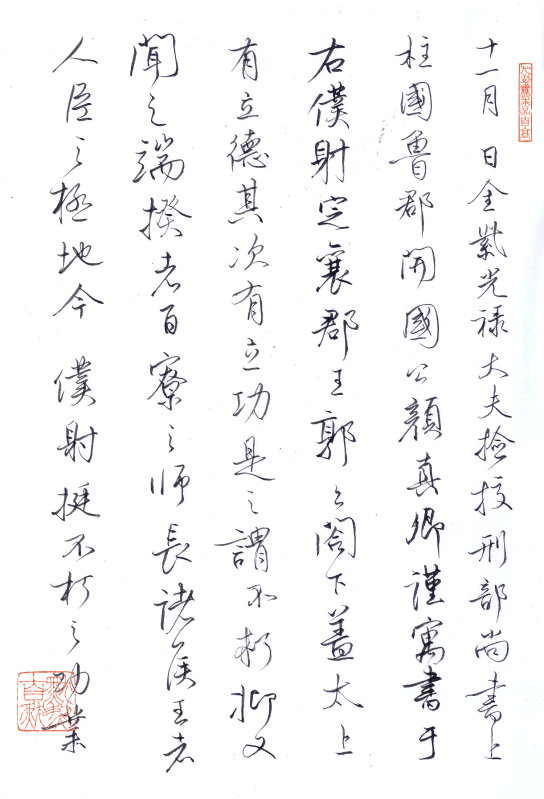 十一月 日金紫光禄大夫撿挍刑部尚書上
柱國魯郡開國公顏真卿謹寓書于
右僕射定襄郡王郭公閤下蓋太上
有立德其次有立功是之謂不朽抑又
聞之端揆者百寮之師長諸侯王者
人臣之極地今 僕射挺不朽之功業